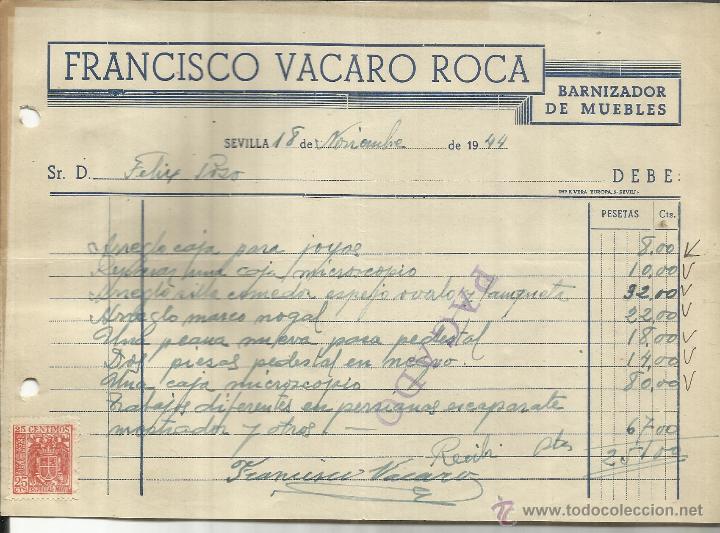 FRANCISCO VACARO ROCA
BARNIZADOR
DE MUEBLES
SEVILLA 18 de Noviembre de 1944
Sr. D. Felix Poso DEBE:
PESETAS Cts.
Arreglo caja para joyas 8,00
Reparar una caja microscopio 10,00
Arreglo silla comedor espejo ovalo y banqueta 32,00
Arreglo marco nogal 22,00
Una peana nueva para pedestal 18,00
Dos piesas pedestal en nuevo 14,00
Una caja microscopio 80,00
Trabajos diferentes en persianas escaparate
mostrador y otros. — 67,00
Recibi Ptas 251,00
Francisco Vacaro
PAGADO
25 CENTIMOS
25
www.todocoleccion.net